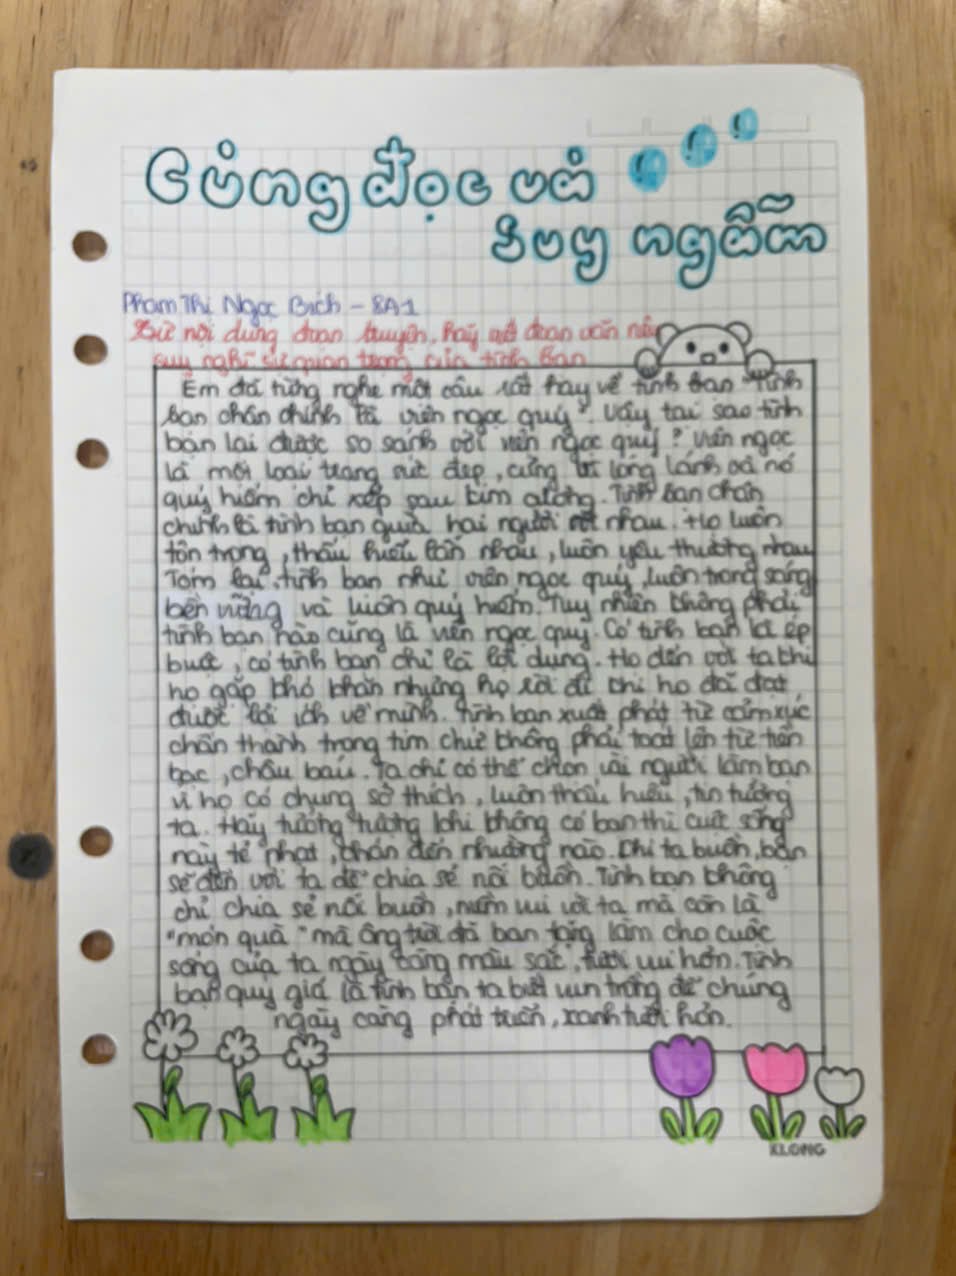 Cùng đọc và
suy ngẫm
Phạm Thị Ngọc Bích - 8A1
Từ nội dung đoạn truyện, hãy viết đoạn văn nêu
suy nghĩ sự quan trọng của tình bạn
Em đã từng nghe một câu rất hay về tình bạn "Tình
bạn chân chính là viên ngọc quý". Vậy tại sao tình
bạn lại được so sánh với viên ngọc quý? Viên ngọc
là một loại trang sức đẹp, cứng lấp lánh và nó
quý hiếm chỉ xếp sau kim cương. Tình bạn chân
chính là tình bạn giữa hai người với nhau. Họ luôn
tôn trọng, thấu hiểu lẫn nhau, luôn yêu thương nhau
Tóm lại, tình bạn như viên ngọc quý, luôn trong sáng
bền vững và luôn quý hiếm. Tuy nhiên không phải
tình bạn nào cũng là viên ngọc quý. Có tình bạn là ép
buộc, có tình bạn chỉ là lợi dụng. Họ đến với ta khi
họ gặp khó khăn nhưng họ rời đi khi họ đã đạt
được lợi ích về mình. Tình bạn xuất phát từ cảm xúc
chân thành trong tim chứ không phải toát lên từ tiền
bạc, châu báu. Ta chỉ có thể chọn vài người làm bạn
vì họ có chung sở thích, luôn thấu hiểu, tin tưởng
ta. Hãy tưởng tượng khi không có bạn thì cuộc sống
này tẻ nhạt, chán đến nhường nào. Khi ta buồn, bạn
sẽ đến với ta để chia sẻ nỗi buồn. Tình bạn không
chỉ chia sẻ nỗi buồn, niềm vui với ta mà còn là
"món quà" mà ông trời đã ban tặng làm cho cuộc
sống của ta ngày càng màu sắc, tươi vui hơn. Tình
bạn quý giá là tình bạn ta biết vun trồng để chúng
ngày càng phát triển, xanh tươi hơn.
KLONG